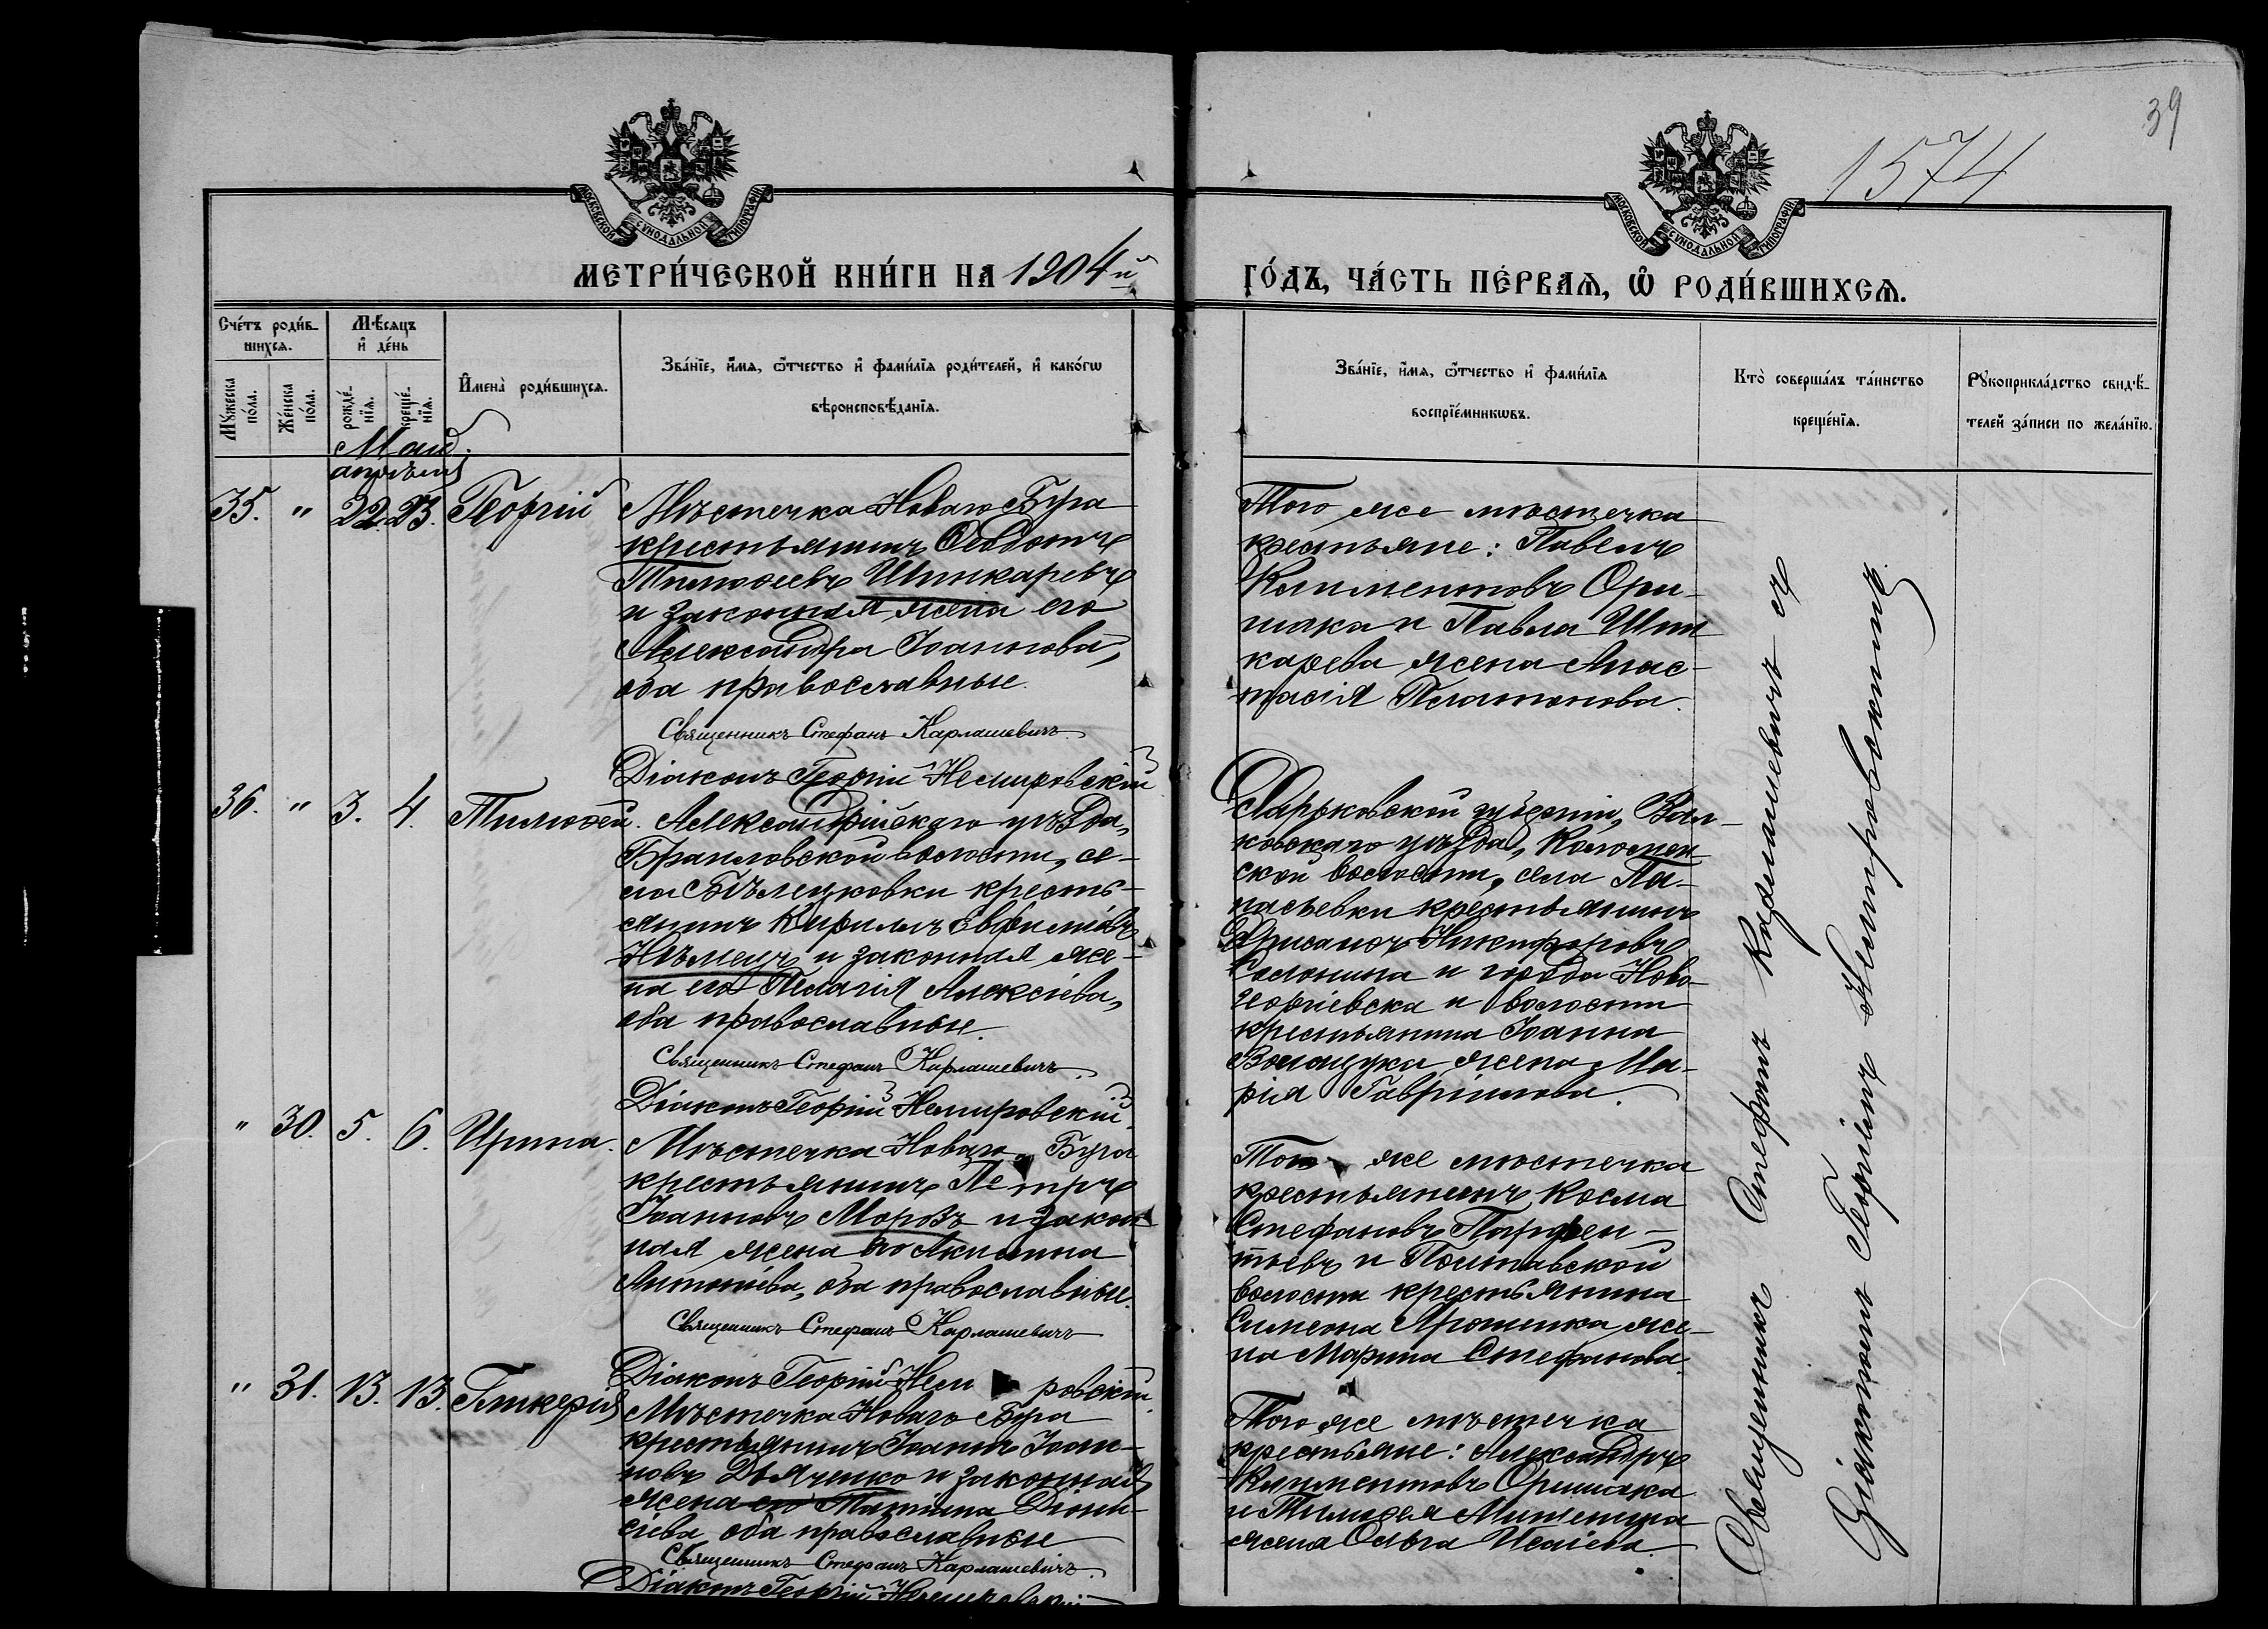 39
1574
МОСКОВСКОЙ СѴНОДАЛЬНОЙ ТИПОГРАФІИ
МОСКОВСКОЙ СѴНОДАЛЬНОЙ ТИПОГРАФІИ
МЕТРИ́ЧЕСКОЙ КНИ́ГИ НА 1904й
ГО́ДЪ, ЧА́СТЬ ПЕ́РВАѦ, Ѡ҆ РОДИ́ВШИХСѦ.
Сче́тъ роди́в-
шихсѧ.
Мѣ́сѧцъ
и҆ де́нь
Мꙋ́жеска
по́ла.
Же́нска
по́ла.
рожде́-
нїѧ.
креще́-
нїѧ.
И҆мена̀ роди́вшихсѧ.
Зва́нїе, и҆́мѧ, ѻ҆́тчество и҆ фами́лїѧ роди́телей, и҆ како́гѡ
вѣроисповѣ́данїѧ.
Зва́нїе, и҆́мѧ, ѻ҆́тчество и҆ фами́лїѧ
воспрїе́мникѡвъ.
Кто̀ соверша́лъ та́инство
креще́нїѧ.
Рꙋкоприкла́дство свидѣ́-
телей за́писи по жела́нїю.
Май.
апрѣль
35. " 22. 23. Георгій
Мѣстечка Новаго Буга
крестьянинъ Ѳеодотъ
Тимоѳеевъ Шинкаревъ
и законная жена его
Александра Іоаннова,
оба православные.
Священникъ Стефанъ Карлашевичъ.
Діаконъ Георгій Немировскій
Того же мѣстечка
крестьяне: Павелъ
Климентовъ Ори-
шака и Павла Шин
карева жена Анас-
тасія Платонова.
36. " 3. 4. Тимоѳей.
Александрійскаго уѣзда,
Браиловской волости, се-
ла Бѣлецковки кресть-
янинъ Кириллъ Евфиміевъ
Нѣмецъ и законная же-
на его Пелагія Алексіева,
оба православные.
Священникъ Стефанъ Карлашевичъ.
Діаконъ Георгій Немировскій.
Харьковской губерніи, Вал-
ковскаго уѣзда, Коломен
ской волости, села Па-
насьевки крестьянинъ
Хрисанѳъ Никифоровъ
Солонина и города Ново-
георгіевска и волости
крестьянина Іоанна
жена Ма-
рія Гавріилова.
" 30. 5. 6. Ирина.
Мѣстечка Новаго Буга
крестьянинъ Петръ
Іоанновъ Морозъ и закон
ная жена его Акилина
Антоніева, оба православные.
Священникъ Стефанъ Карлашевичъ
Діаконъ Георгій Немировскій.
Того же мѣстечка
крестьянинъ Косма
Стефановъ Парфен-
тьевъ и Полтавской
волости крестьянина
Симеона Ярошенка же-
на Марина Стефанова.
" 31. 13. 13. Гликерія
Мѣстечка Новаго Буга
крестьянинъ Іоаннъ Іоан-
новъ Дьяченко и законная
жена его Татіана Діони-
сіева, оба православные
Священникъ Стефанъ Карлашевичъ.
Діаконъ Георгій Немировскій
Того же мѣстечка
крестьяне: Александръ
Климентовъ Оришака
и Тимоѳея
жена Ольга Исаіева.
Священникъ Стефанъ Карлашевичъ съ
Діакономъ Георгіемъ Немировскимъ.